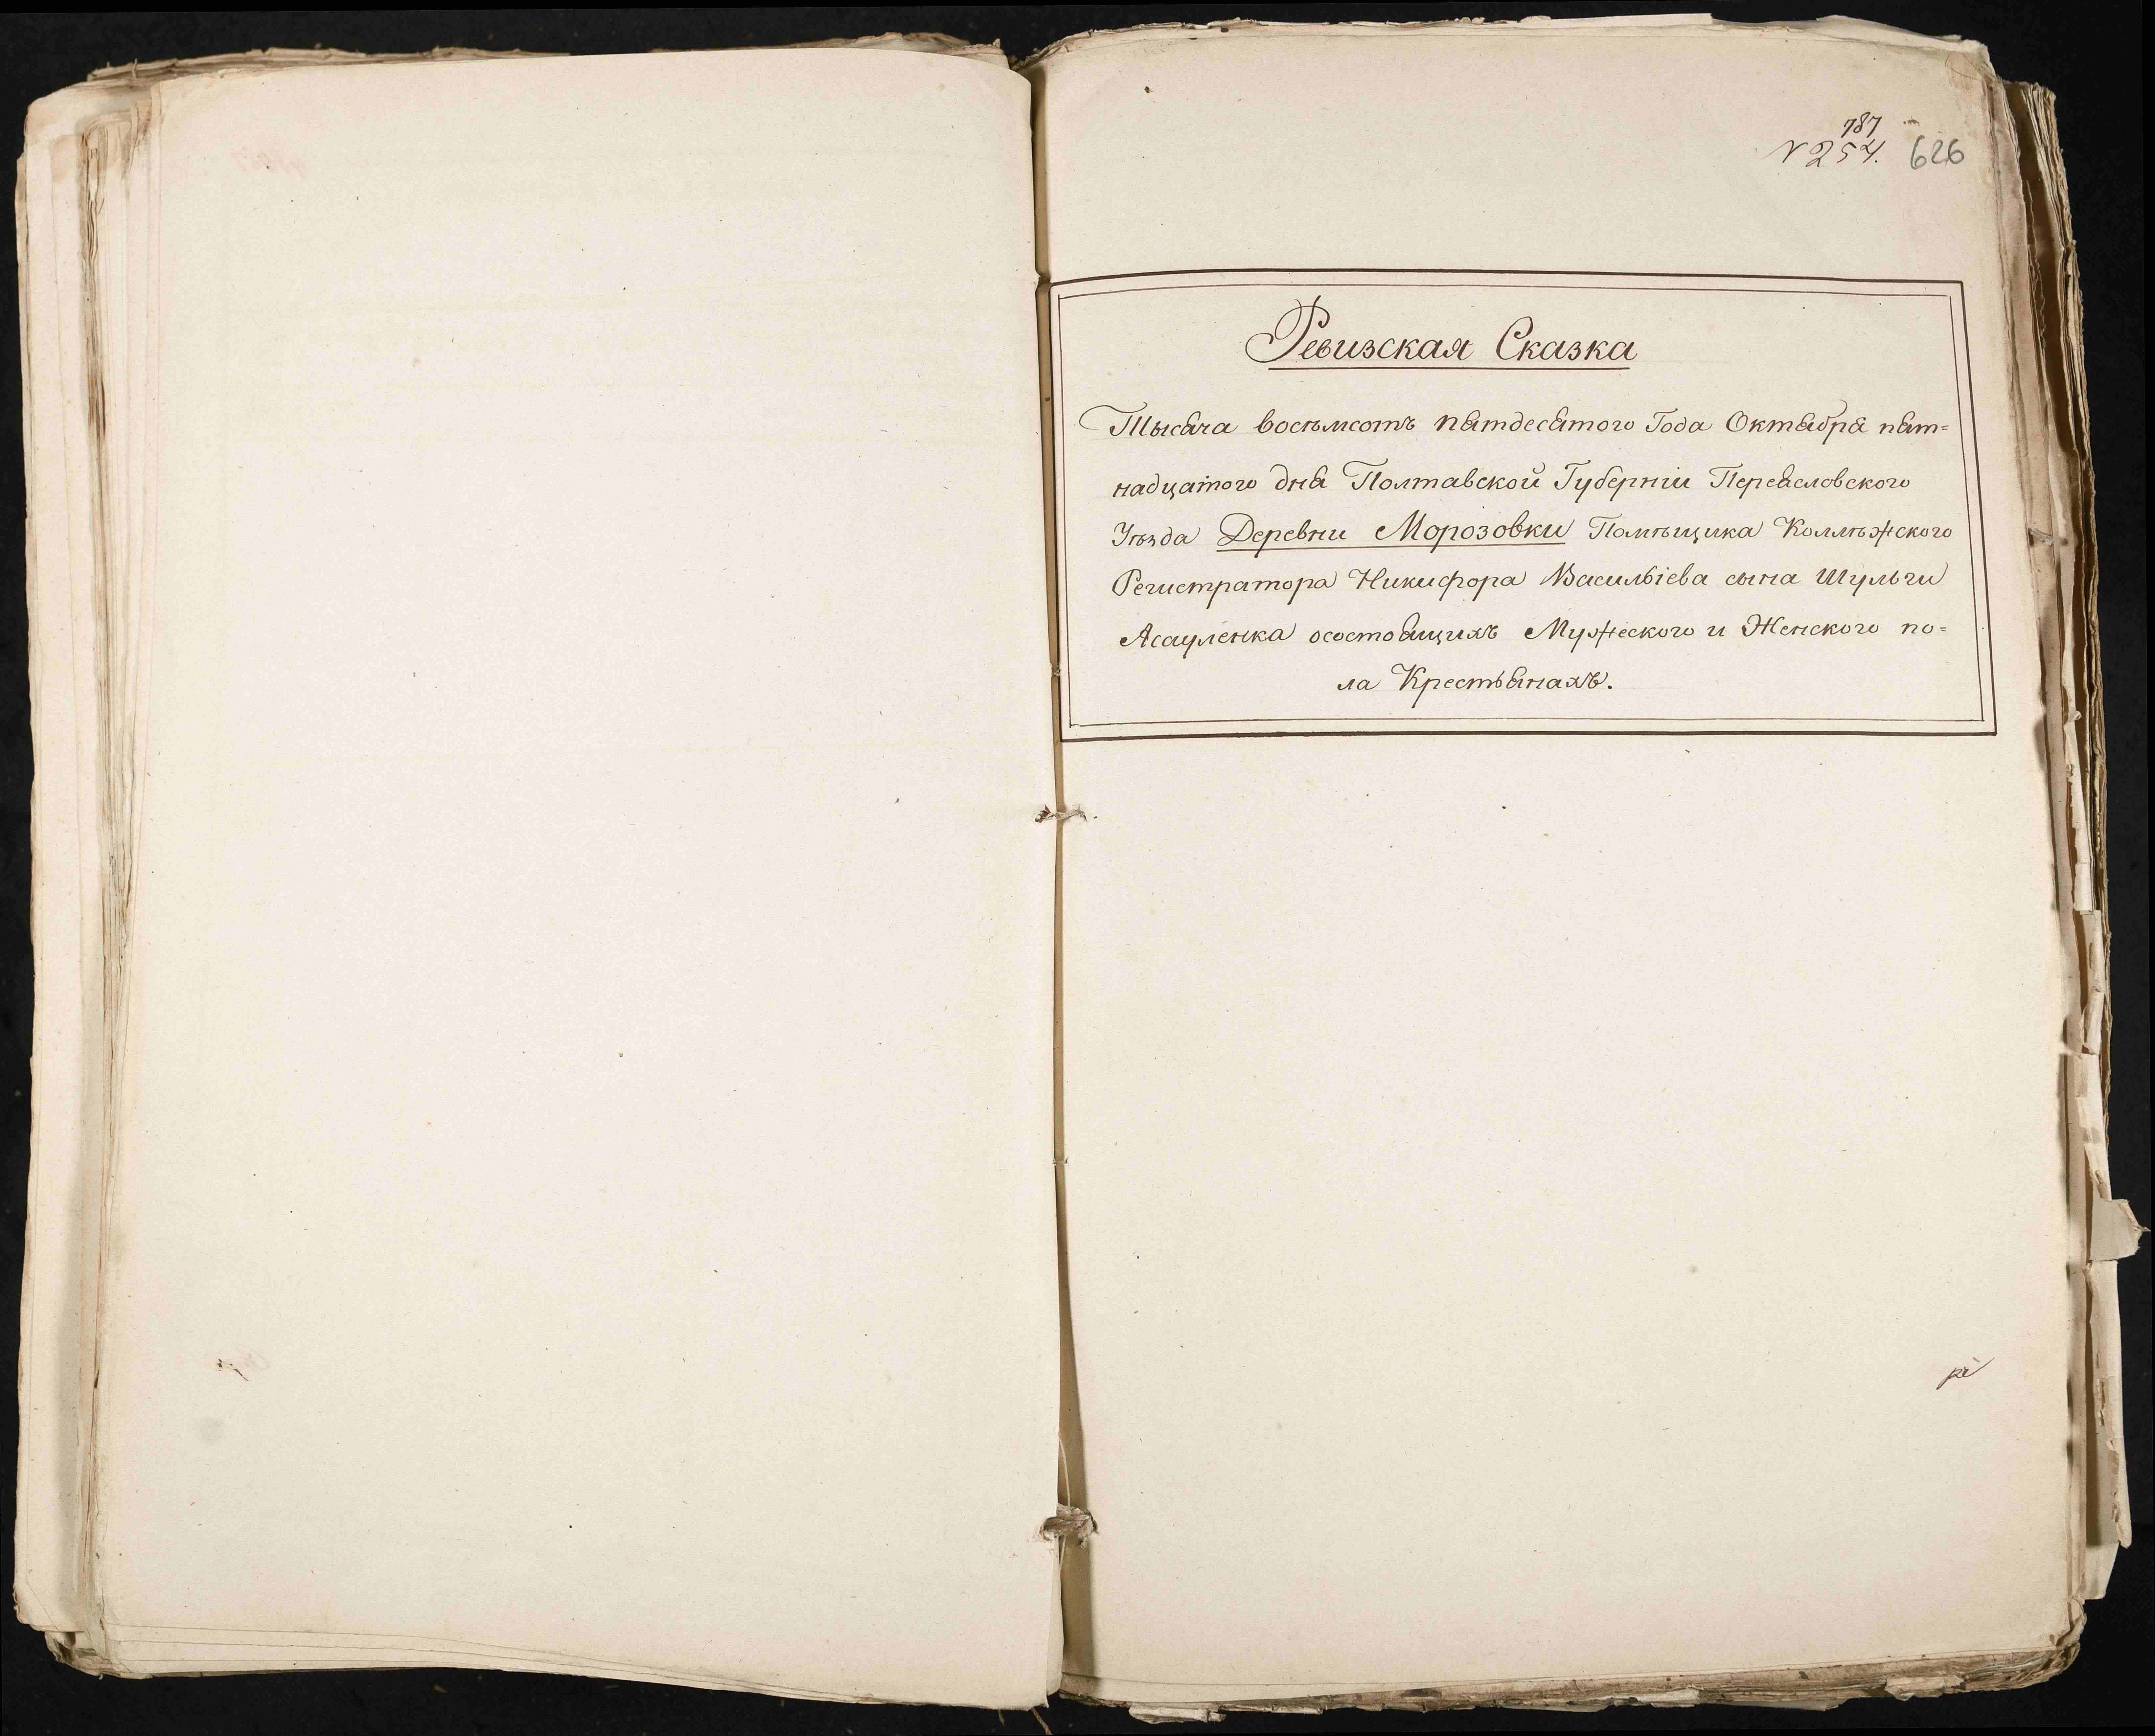 787
№ 254. 626
Ревизская Сказка
Тысяча восемсотъ пятдесятого Года Октября пят=
надцатого дня Полтавской Губерніи Переясловского
Уѣзда Деревни Морозовки Помѣщика Коллѣжского
Регистратора Никифора Васильіева сына Шульги
Асауленка осостоящихъ Мужеского и Женского по=
ла Крестьянахъ.